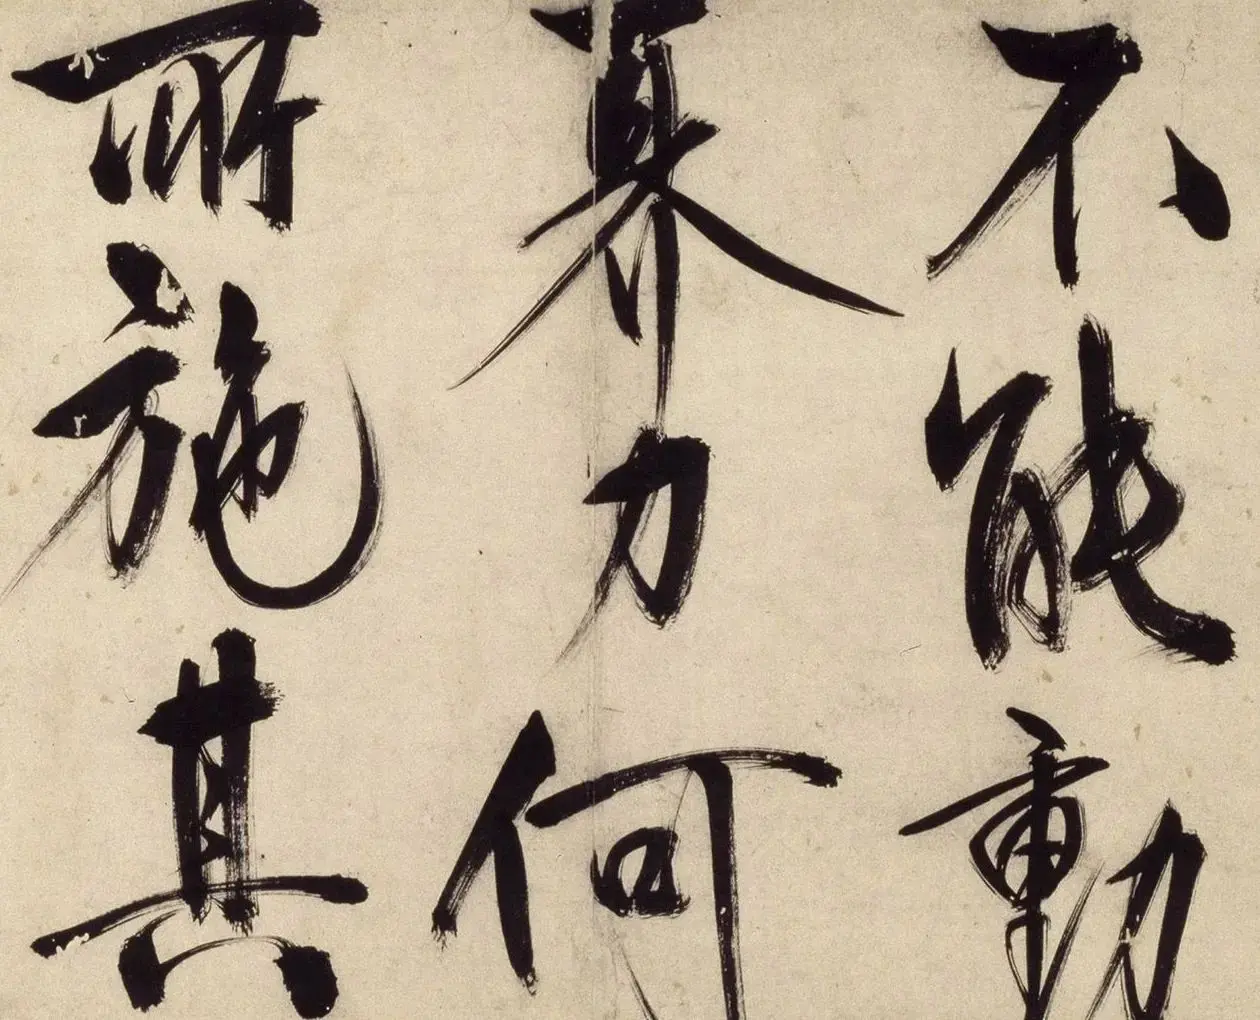 不能動
力何
所施其